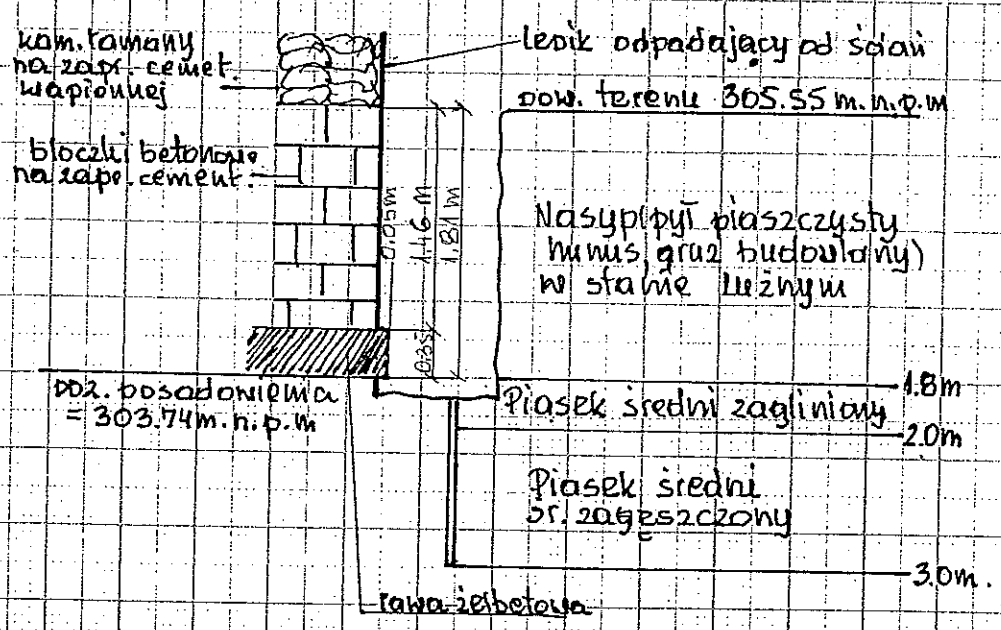 kam. łamany
na zapr. cemet.
wapionnej
lepik odpadający od ścian
pow. terenu 305.55 m.n.p.m
bloczki betonowe
na zapr. cement.
0.05m
1.46 m
1.81 m
0.35
Nasyp(pył piaszczysty
humus, gruz budowlany)
w stanie luźnym
poz. posadowienia
= 303.74m.n.p.m
1.8m
Piasek średni zagliniany
2.0m
Piasek średni
śr. zagęszczony
3.0m.
ława żelbetowa